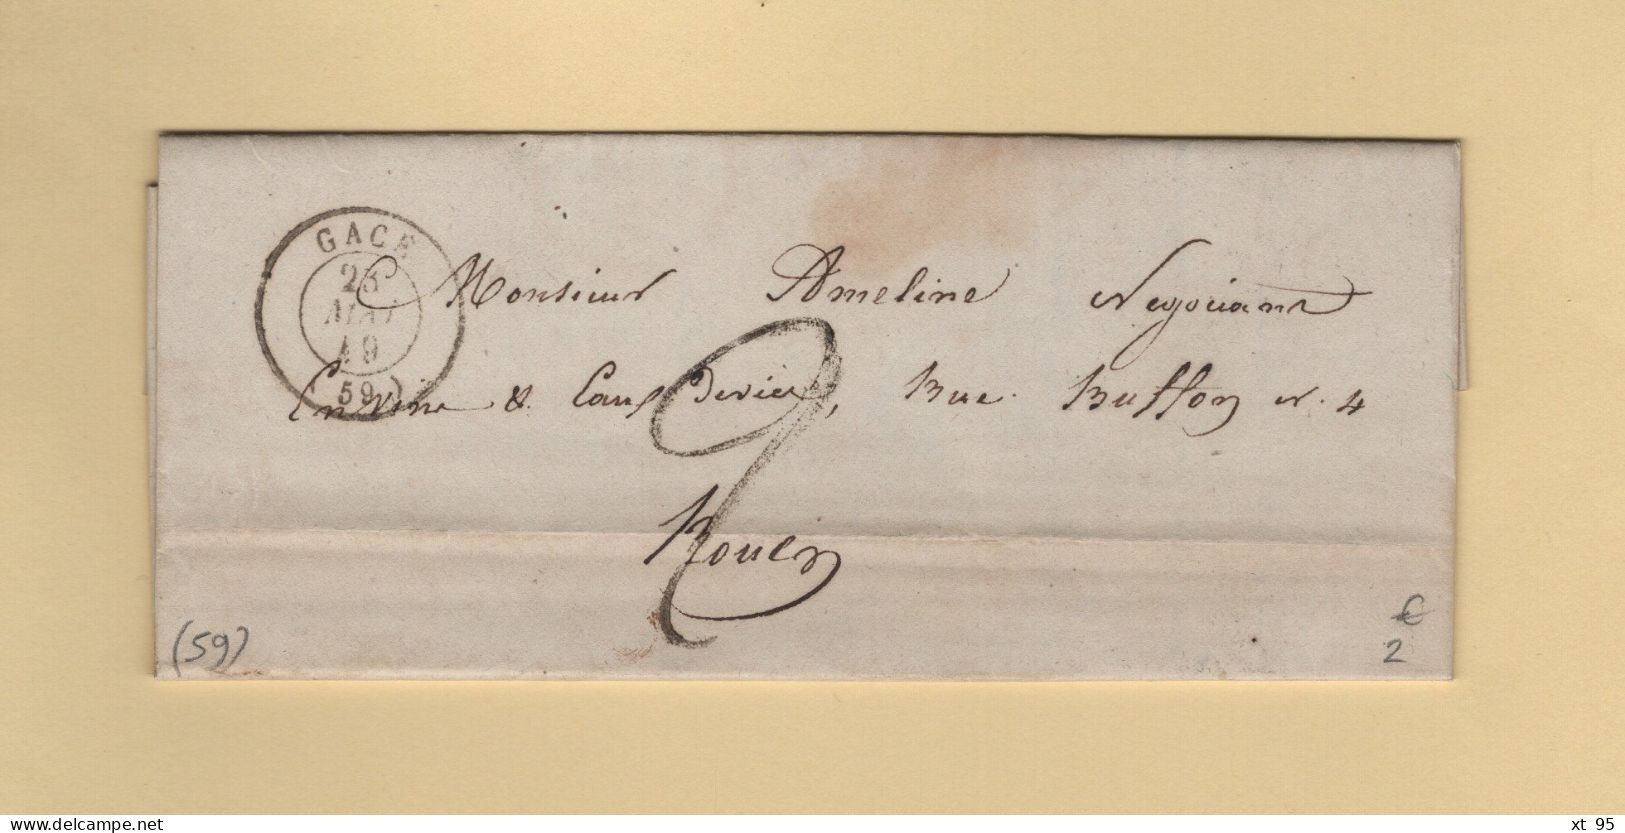 GACE
23
MAI
49
(59)
Monsieur Ameline Negociant
En Vins & Eaux de vie, Rue Buffon n. 4
2
Rouen
(59)
€
2
www.delcampe.net
xt_95